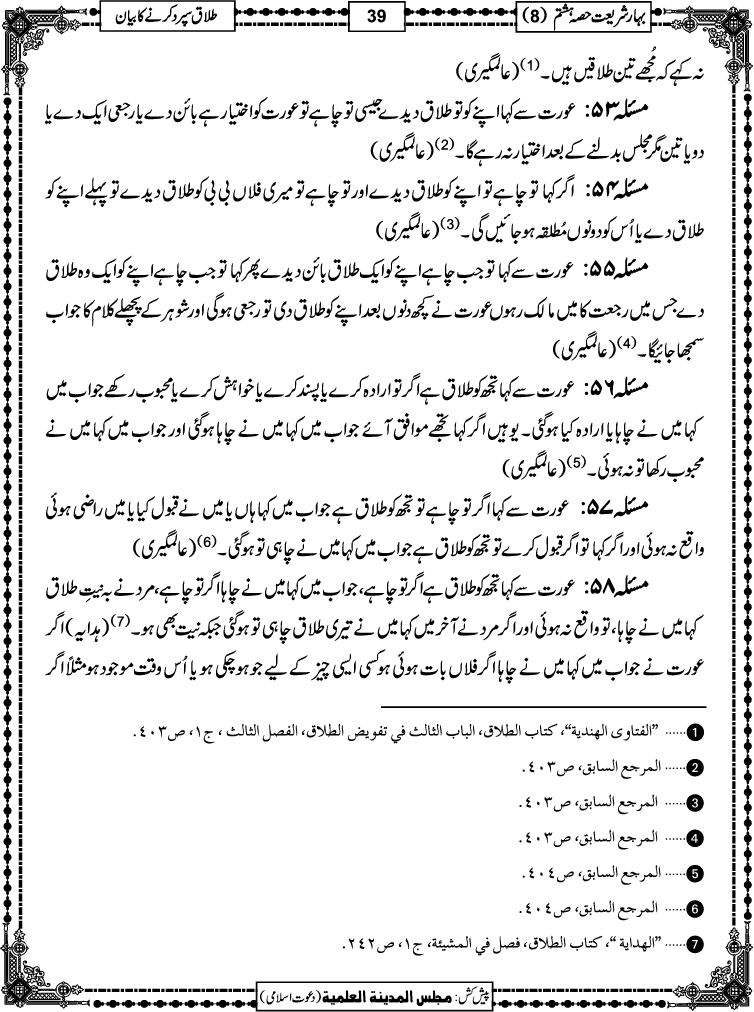 بہارِ شریعت حصہ ہشتم (8)
39
طلاق سپرد کرنے کا بیان
نہ کہے کہ مُجھے تین طلاقیں ہیں۔(1) (عالمگیری)
مسئلہ ۵۳: عورت سے کہا اپنے کو تو طلاق دیدے جیسی تو چاہے تو عورت کو اختیار ہے بائن دے یا رجعی ایک دے یا
دو یا تین مگر مجلس بدلنے کے بعد اختیار نہ رہے گا۔(2) (عالمگیری)
مسئلہ ۵۴: اگر کہا تو چاہے تو اپنے کو طلاق دیدے اور تو چاہے تو میری فلاں بی بی کو طلاق دیدے تو پہلے اپنے کو
طلاق دے یا اُس کو دونوں مُطلقہ ہو جائیں گی۔(3) (عالمگیری)
مسئلہ ۵۵: عورت سے کہا تو جب چاہے اپنے کو ایک طلاق بائن دیدے پھر کہا تو جب چاہے اپنے کو ایک وہ طلاق
دے جس میں رجعت کا میں مالک رہوں عورت نے کچھ دنوں بعد اپنے کو طلاق دی تو رجعی ہوگی اور شوہر کے پچھلے کلام کا جواب
سمجھا جائیگا۔(4) (عالمگیری)
مسئلہ ۵۶: عورت سے کہا تجھ کو طلاق ہے اگر تو ارادہ کرے یا پسند کرے یا خواہش کرے یا محبوب رکھے جواب میں
کہا میں نے چاہا یا ارادہ کیا ہوگئی۔ یوہیں اگر کہا تجھے موافق آئے جواب میں کہا میں نے چاہا ہوگئی اور جواب میں کہا میں نے
محبوب رکھا تو نہ ہوئی۔(5) (عالمگیری)
مسئلہ ۵۷: عورت سے کہا اگر تو چاہے تو تجھ کو طلاق ہے جواب میں کہا ہاں یا میں نے قبول کیا یا میں راضی ہوئی
واقع نہ ہوئی اور اگر کہا تو اگر قبول کرے تو تجھ کو طلاق ہے جواب میں کہا میں نے چاہی تو ہوگئی۔(6) (عالمگیری)
مسئلہ ۵۸: عورت سے کہا تجھ کو طلاق ہے اگر تو چاہے، جواب میں کہا میں نے چاہا اگر تو چاہے، مرد نے بہ نیتِ طلاق
کہا میں نے چاہا، تو واقع نہ ہوئی اور اگر مرد نے آخر میں کہا میں نے تیری طلاق چاہی تو ہوگئی جبکہ نیت بھی ہو۔(7) (ہدایہ) اگر
عورت نے جواب میں کہا میں نے چاہا اگر فلاں بات ہوئی ہو کسی ایسی چیز کے لیے جو ہو چکی ہو یا اُس وقت موجود ہو مثلاً اگر
1...... "الفتاوى الهندية"، كتاب الطلاق، الباب الثالث في تفويض الطلاق، الفصل الثالث ، ج١، ص٤٠٣.
2...... المرجع السابق، ص٤٠٣.
3...... المرجع السابق، ص٤٠٣.
4...... المرجع السابق، ص٤٠٣.
5...... المرجع السابق، ص٤٠٤.
6...... المرجع السابق، ص٤٠٤.
7...... "الهداية "، كتاب الطلاق، فصل في المشيئة، ج١، ص٢٤٢.
پیش کش: مجلس المدينة العلمية (دعوت اسلامی)